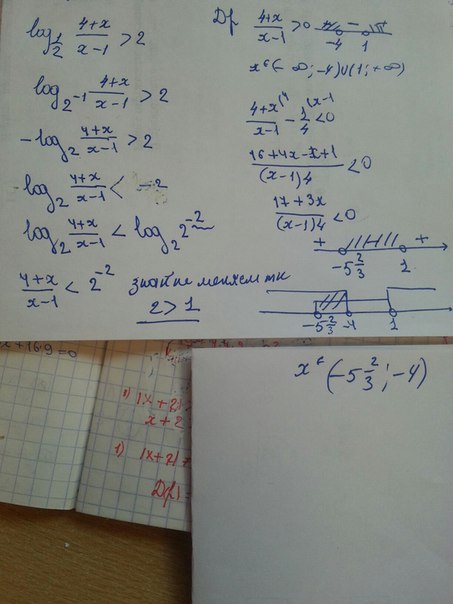 log_{1/2} (4+x)/(x-1) > 2
log_{2^{-1}} (4+x)/(x-1) > 2
-log_2 (4+x)/(x-1) > 2
-log_2 (4+x)/(x-1) < -2
log_2 (4+x)/(x-1) < log_2 2^{-2}
(4+x)/(x-1) < 2^{-2} знак не меняем тк
2 > 1
Df (4+x)/(x-1) > 0
-4 1
x ∈ (-∞; -4) ∪ (1; +∞)
(4+x)/(x-1) - 1/4 < 0
(16+4x-x+1)/((x-1)4) < 0
(17+3x)/((x-1)4) < 0
+ +
-5 2/3 1
-5 2/3 -4 1
x ∈ (-5 2/3; -4)
x+16·9=0
|x+2|
x+2
1) |x+2|